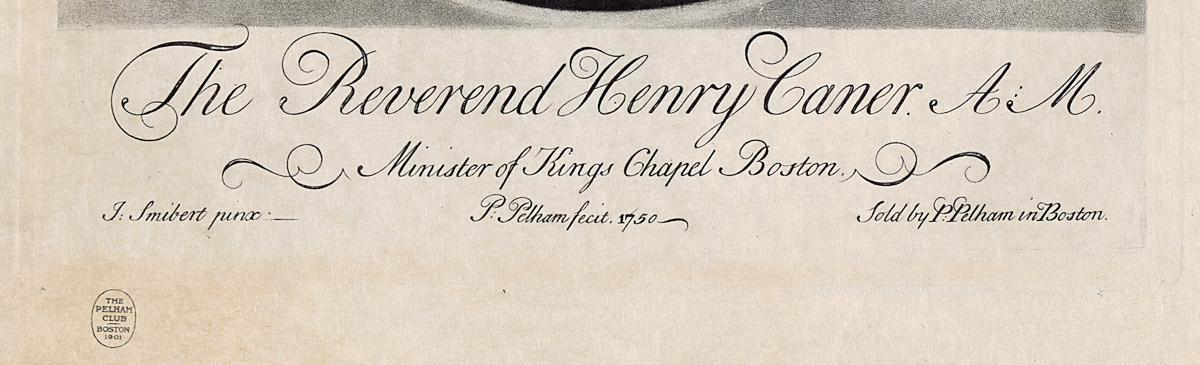 The Reverend Henry Caner. A: M.
Minister of Kings Chapel Boston.
J: Smibert pinx: P: Pelham fecit. 1750 Sold by P: Pelham in Boston.
THE
PELHAM
CLUB
BOSTON
1901